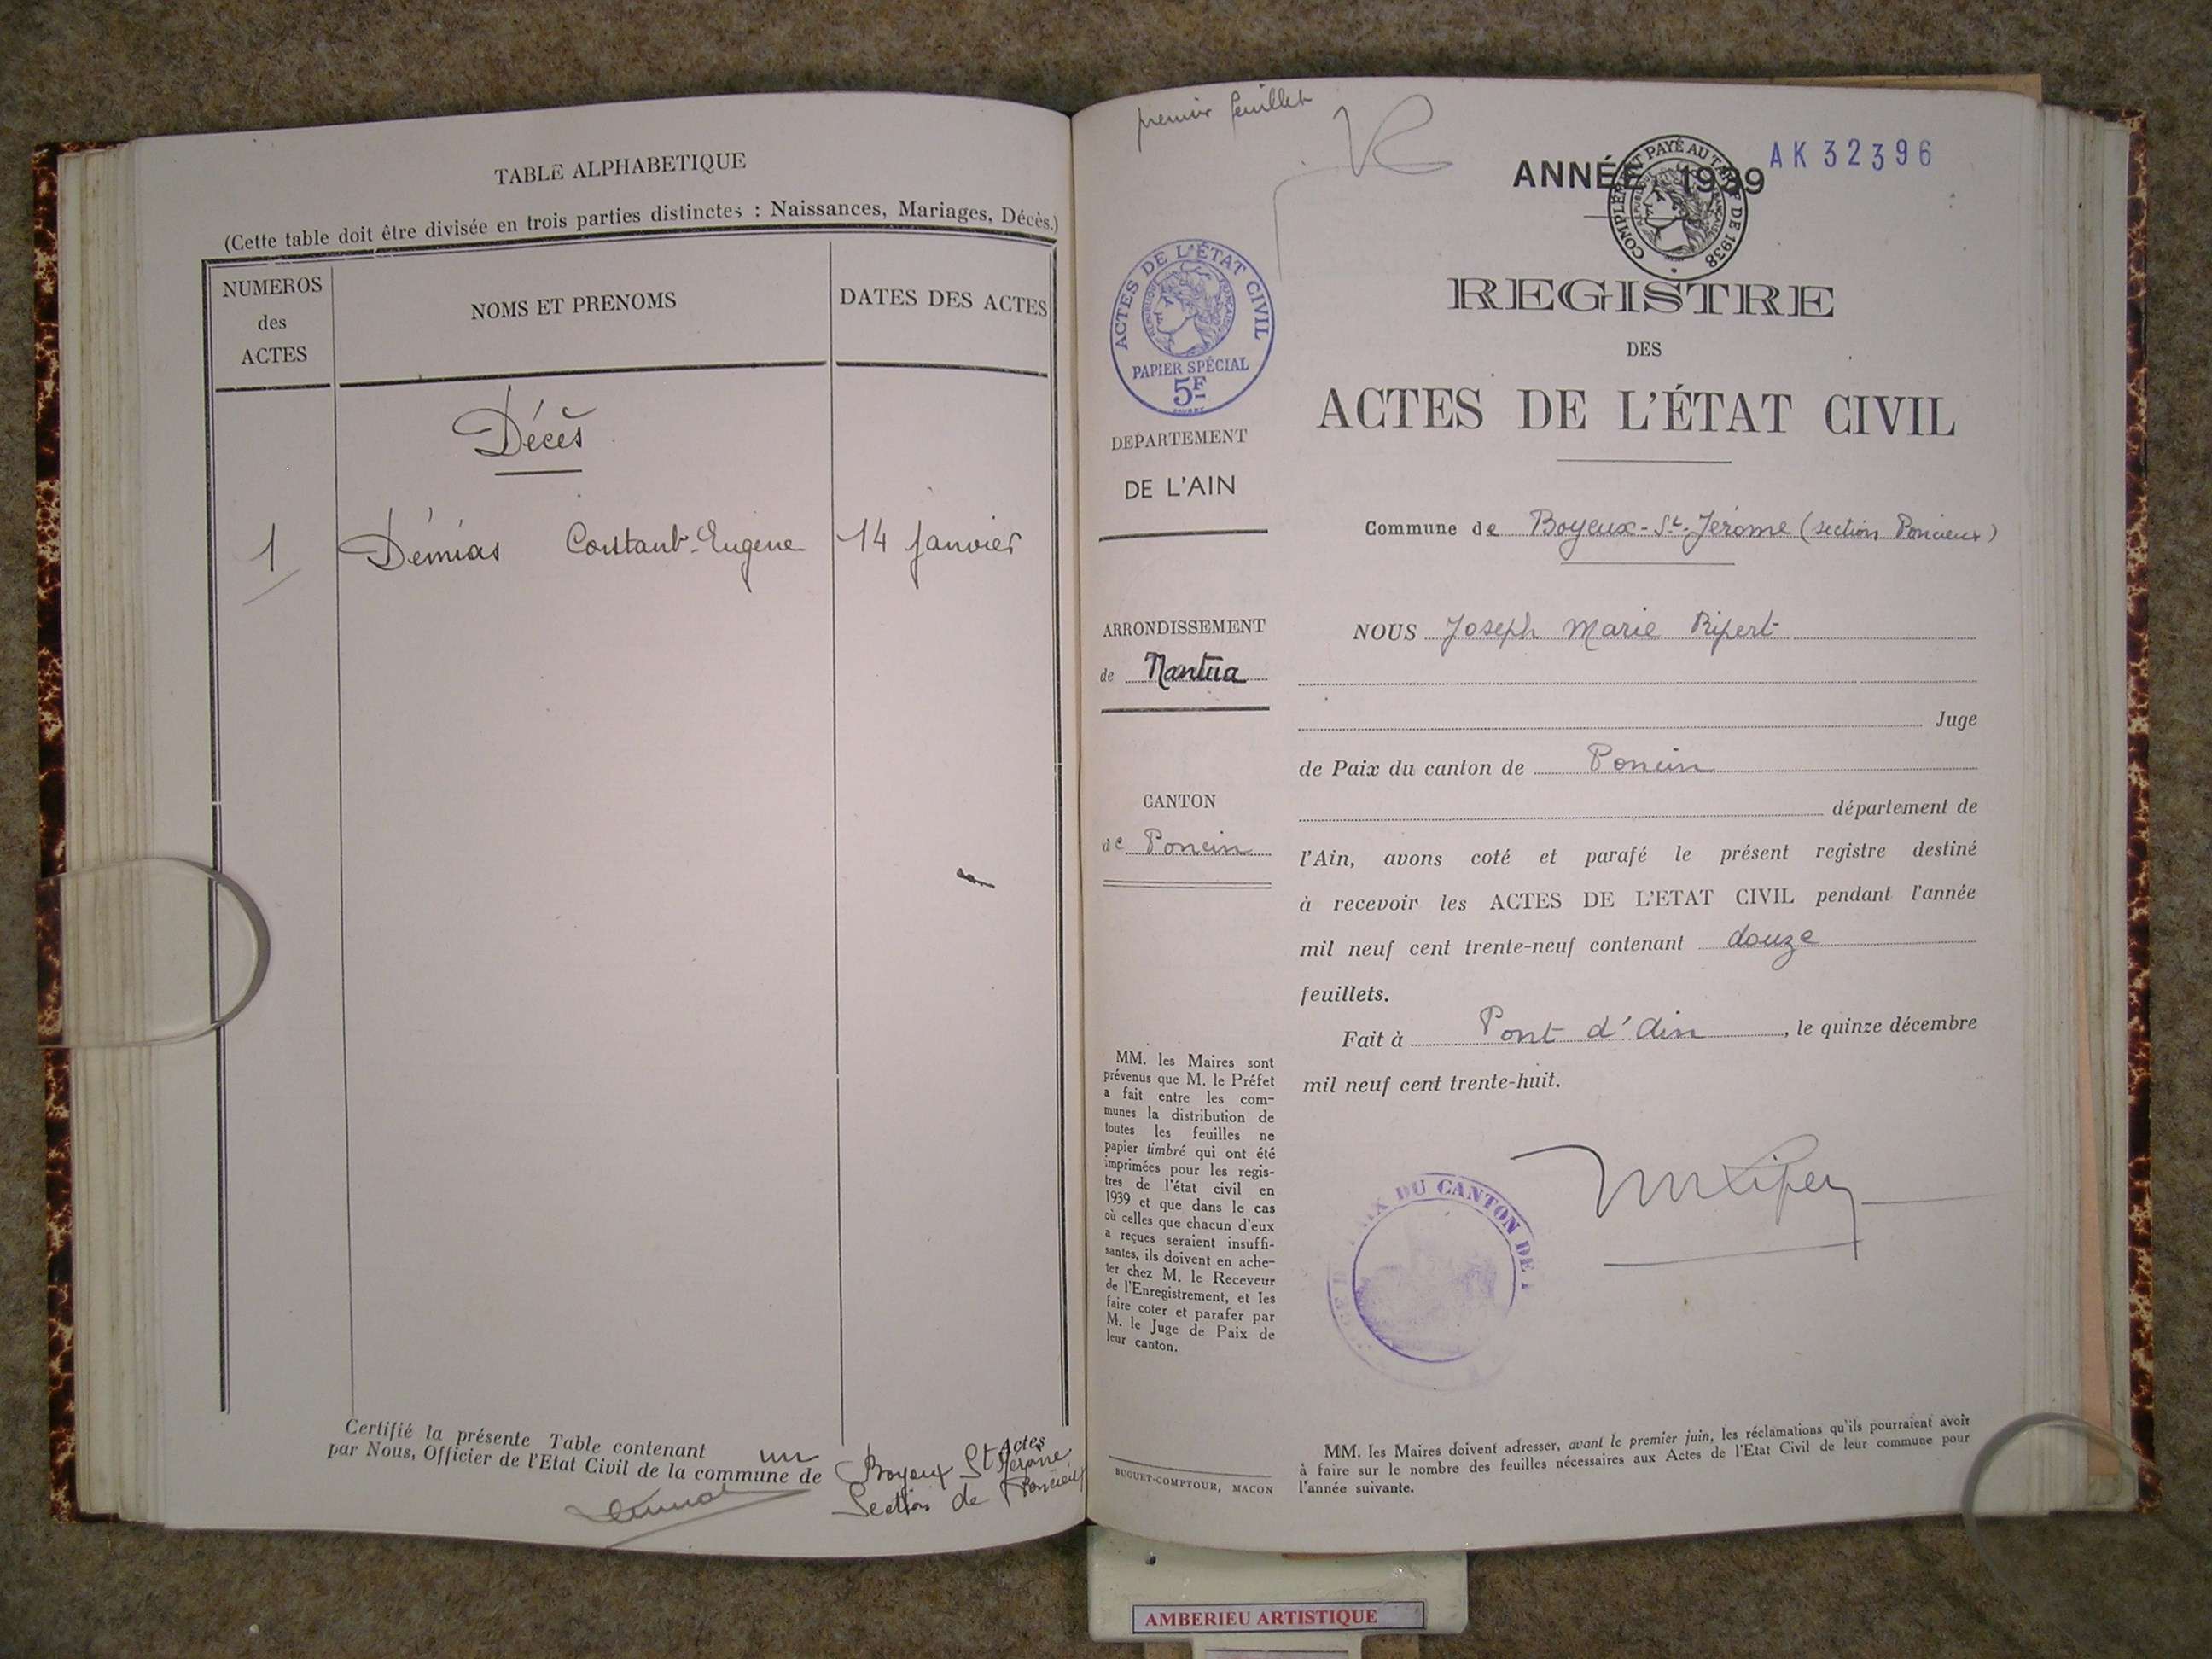 TABLE ALPHABETIQUE
(Cette table doit être divisée en trois parties distinctes : Naissances, Mariages, Décès.)
NUMEROS
des
ACTES
NOMS ET PRENOMS
DATES DES ACTES
Décès
1 Démias Constant-Eugène 14 Janvier
Certifié la présente Table contenant un Actes
par Nous, Officier de l'Etat Civil de la commune de Boyeux St Jérome,
Section de Poncieux
premier feuillet
ANNÉE 1939
AK 32396
COMPLÉMENT PAYÉ AU TARIF DE 1938
REPUBLIQUE FRANÇAISE
ACTES DE L'ÉTAT CIVIL
REPUBLIQUE FRANÇAISE
PAPIER SPÉCIAL
5F
DEPARTEMENT
DE L'AIN
ARRONDISSEMENT
de Nantua
CANTON
de Poncin
MM. les Maires sont
prévenus que M. le Préfet
a fait entre les com-
munes la distribution de
toutes les feuilles ne
papier timbré qui ont été
imprimées pour les regis-
tres de l'état civil en
1939 et que dans le cas
où celles que chacun d'eux
a reçues seraient insuffi-
santes, ils doivent en ache-
ter chez M. le Receveur
de l'Enregistrement, et les
faire coter et parafer par
M. le Juge de Paix de
leur canton.
BUGUET-COMPTOUR, MACON
REGISTRE
DES
ACTES DE L'ÉTAT CIVIL
Commune de Boyeux-St-Jérome (section Poncieux)
NOUS Joseph Marie Ripert
Juge
de Paix du canton de Poncin
département de
l'Ain, avons coté et parafé le présent registre destiné
à recevoir les ACTES DE L'ETAT CIVIL pendant l'année
mil neuf cent trente-neuf contenant douze
feuillets.
Fait à Pont d'Ain, le quinze décembre
mil neuf cent trente-huit.
DU CANTON DE
MM. les Maires doivent adresser, avant le premier juin, les réclamations qu'ils pourraient avoir
à faire sur le nombre des feuilles nécessaires aux Actes de l'Etat Civil de leur commune pour
l'année suivante.
AMBERIEU ARTISTIQUE